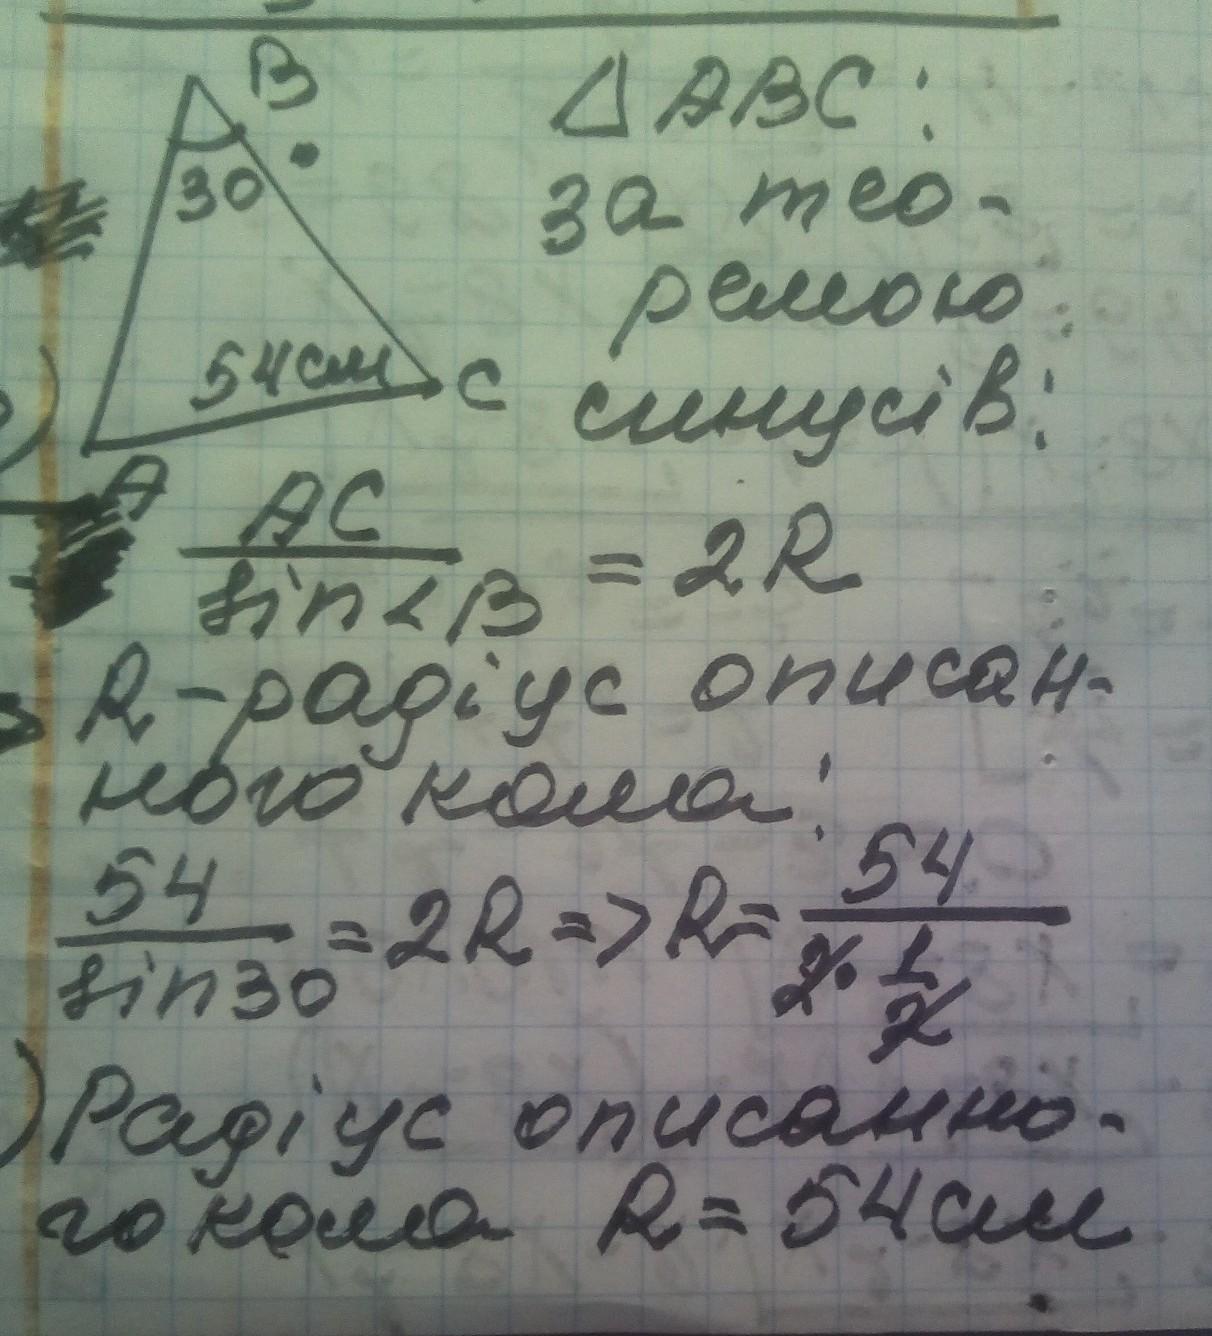 B
30
54см
C
A
△ABC:
за тео-
ремою
синусів:
AC / sin∠B = 2R
R-радіус описан-
ного кола:
54 / sin30 = 2R => R = 54 / 2·1/2
Радіус описанно-
го кола R = 54см